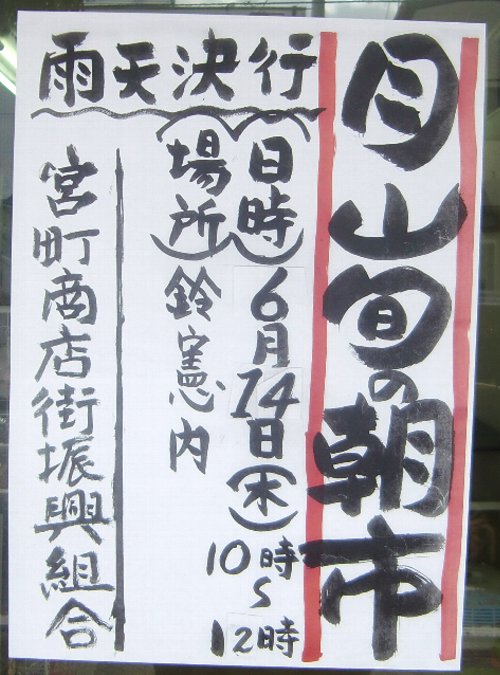 月山旬の朝市
雨天決行
(日時)6月14日(木)
10時~12時
(場所)鈴憲内
宮町商店街振興組合